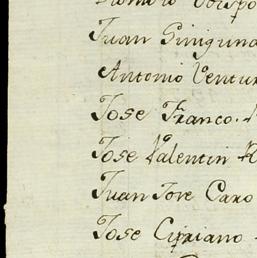 Juan Sinigun
Antonio Ventur
Jose Franco.
Jose Valentin
Juan Jose Caro
Jose Cipriano